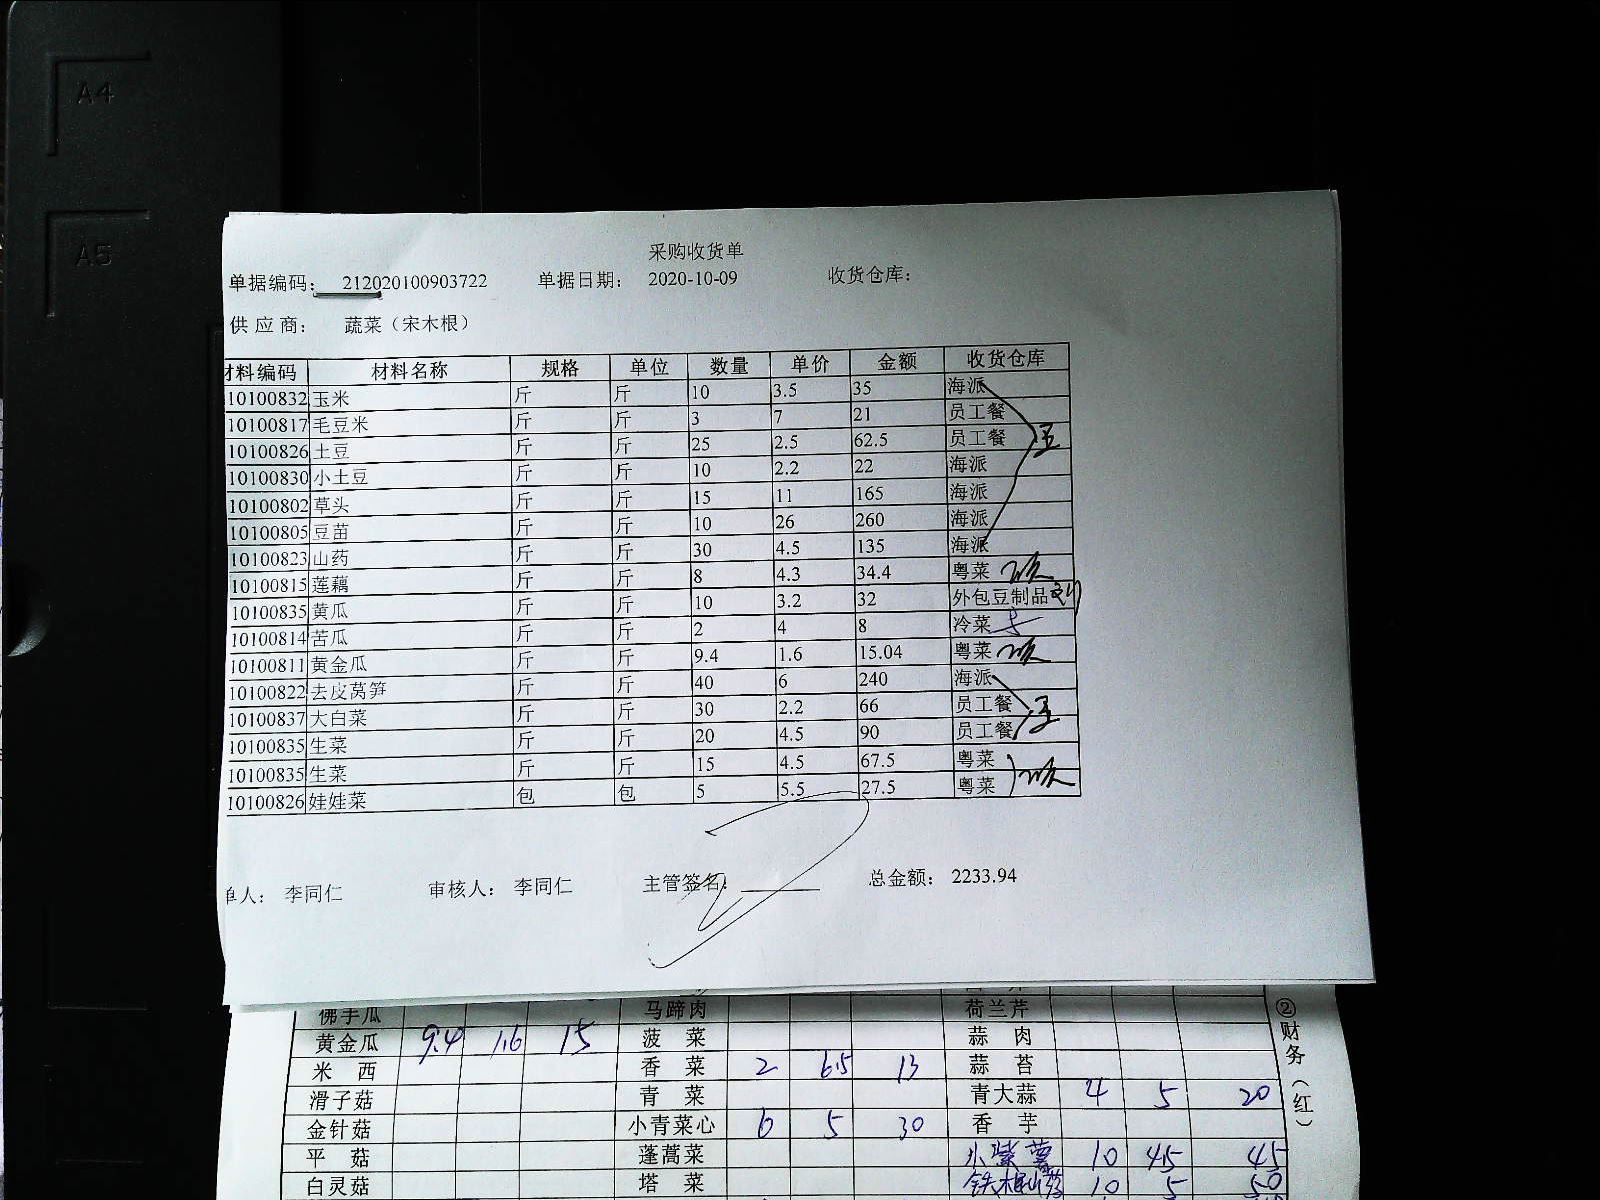 A4
A5
采购收货单
单据编码： 212020100903722 单据日期： 2020-10-09 收货仓库：
供 应 商： 蔬菜（宋木根）
材料编码 材料名称 规格 单位 数量 单价 金额 收货仓库
10100832 玉米 斤 斤 10 3.5 35 海派
10100817 毛豆米 斤 斤 3 7 21 员工餐
10100826 土豆 斤 斤 25 2.5 62.5 员工餐
10100830 小土豆 斤 斤 10 2.2 22 海派
10100802 草头 斤 斤 15 11 165 海派
10100805 豆苗 斤 斤 10 26 260 海派
10100823 山药 斤 斤 30 4.5 135 海派
10100815 莲藕 斤 斤 8 4.3 34.4 粤菜
10100835 黄瓜 斤 斤 10 3.2 32 外包豆制品
10100814 苦瓜 斤 斤 2 4 8 冷菜
10100811 黄金瓜 斤 斤 9.4 1.6 15.04 粤菜
10100822 去皮莴笋 斤 斤 40 6 240 海派
10100837 大白菜 斤 斤 30 2.2 66 员工餐
10100835 生菜 斤 斤 20 4.5 90 员工餐
10100835 生菜 斤 斤 15 4.5 67.5 粤菜
10100826 娃娃菜 包 包 5 5.5 27.5 粤菜
单人： 李同仁 审核人： 李同仁 主管签名： 总金额： 2233.94
佛手瓜 马蹄肉 荷兰芹
黄金瓜 9.4 1.6 15 菠菜 蒜肉
米西 香菜 2 6.5 13 蒜苔
滑子菇 青菜 青大蒜 4 5 20
金针菇 小青菜心 6 5 30 香芋
平菇 蓬蒿菜 小紫薯 10 4.5 45
白灵菇 塔菜 铁棍山药 10 5 50
②财务（红）